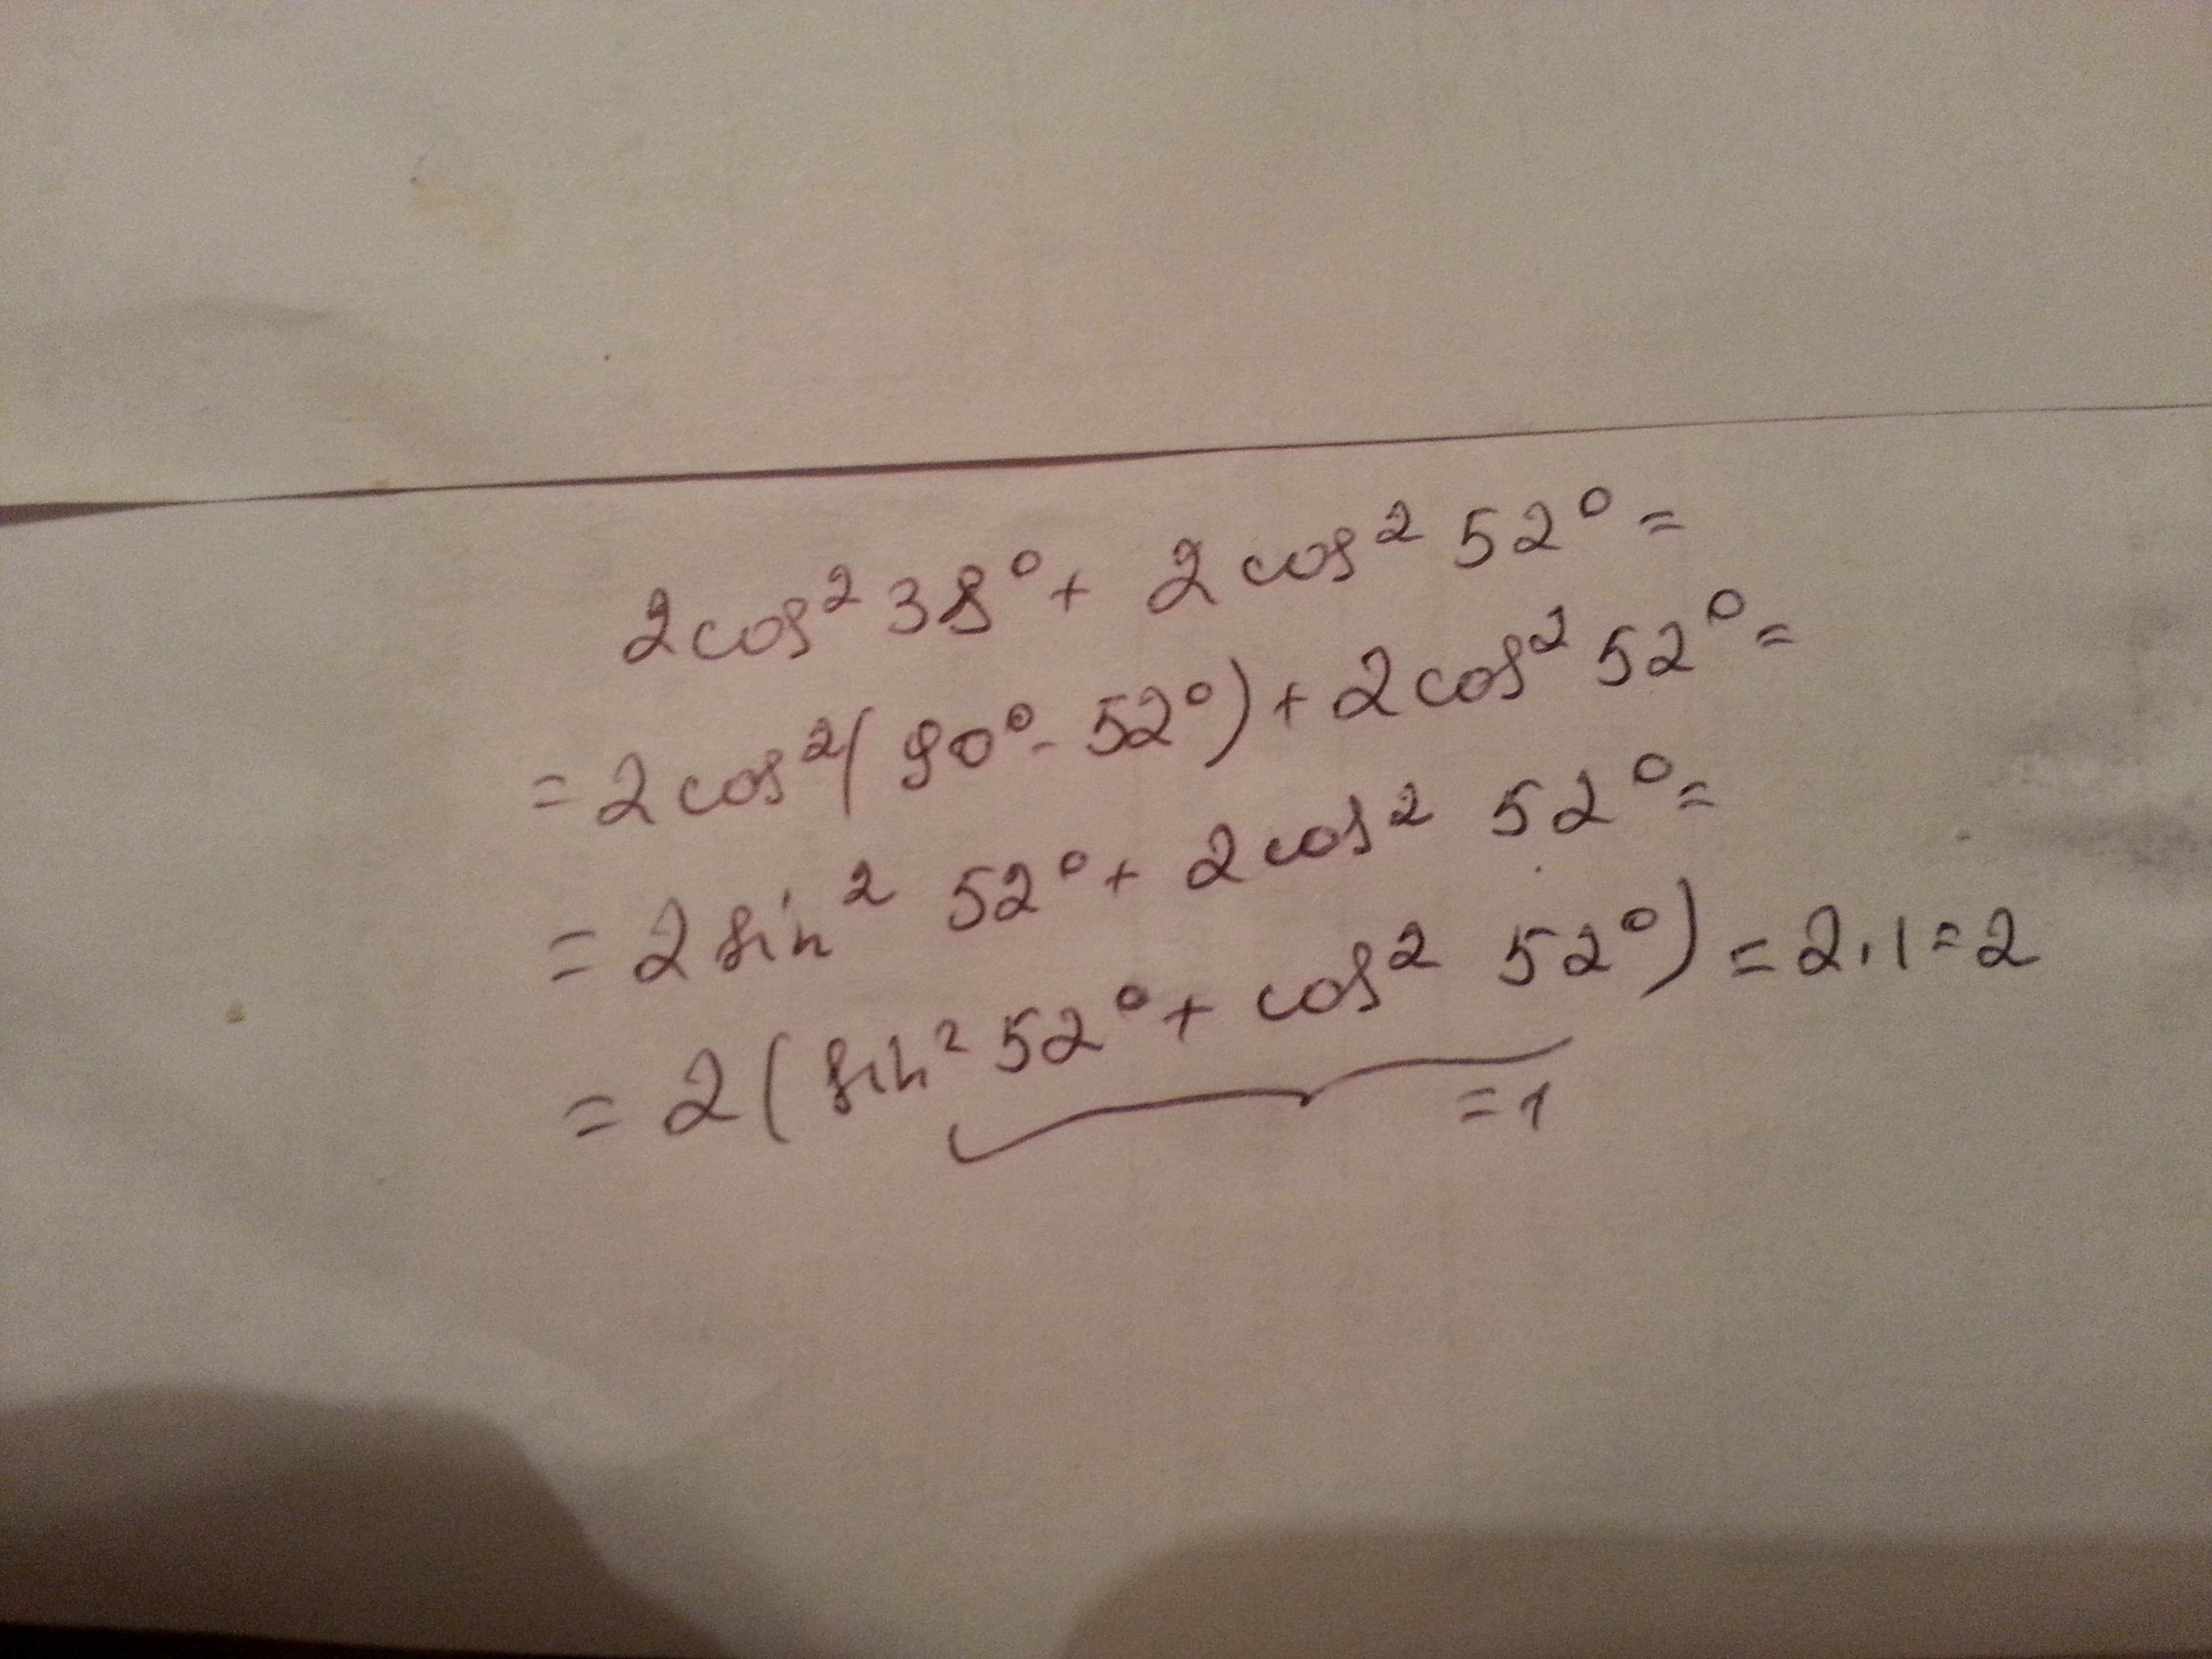 2cos² 38° + 2cos² 52° =
= 2cos² (90° - 52°) + 2cos² 52° =
= 2 sin² 52° + 2cos² 52° =
= 2 (sin² 52° + cos² 52°) = 2 . 1 = 2
= 1